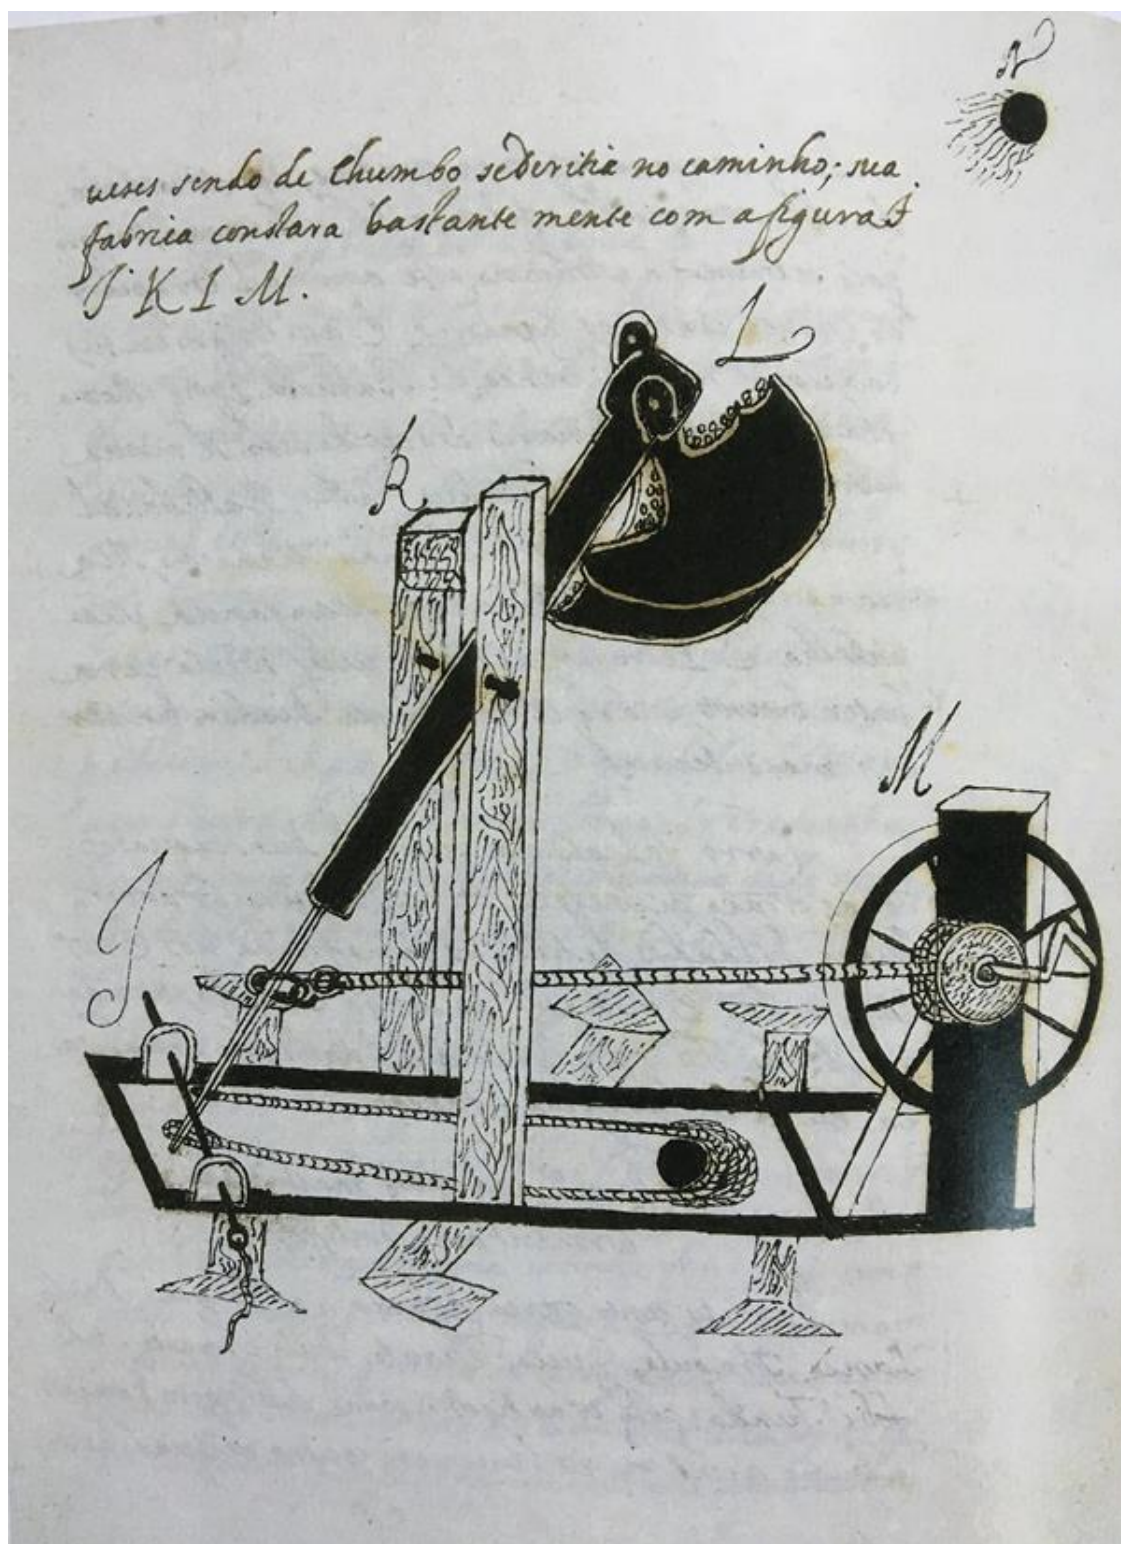 N
ueses sendo de Chumbo sederitia no caminho; sua
fabrica constara bastante mente com afigura J
J K I M.
L
K
M
J